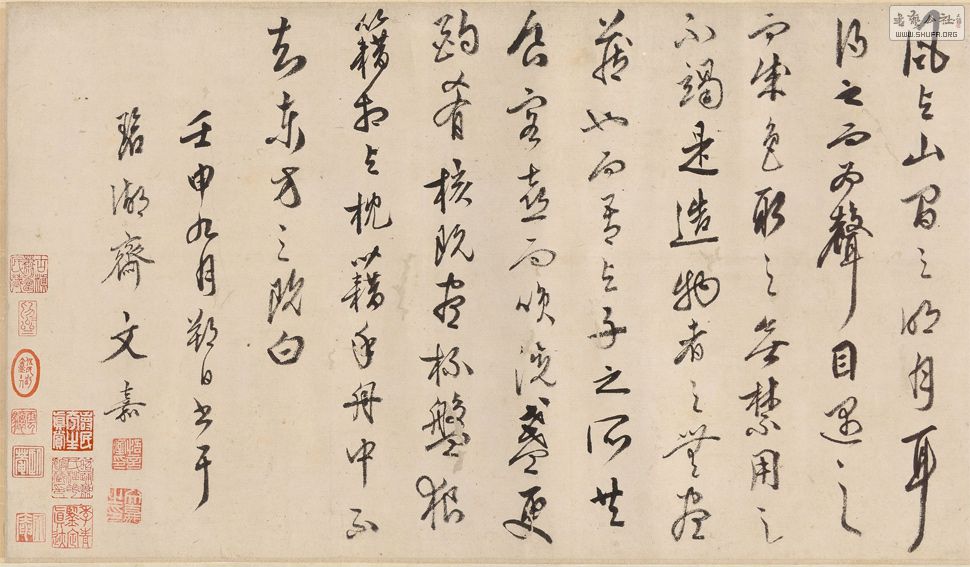 風與山間之明月耳
得之而為聲目遇之
而成色取之無禁用之
不竭是造物者之無盡
藏也而吾與子之所共
食客喜而笑洗盞更
酌肴核既盡杯盤狼
籍相與枕籍乎舟中不
知東方之既白
壬申九月朔日書于
碧湖齋文嘉
WWW.SHUFA.ORG